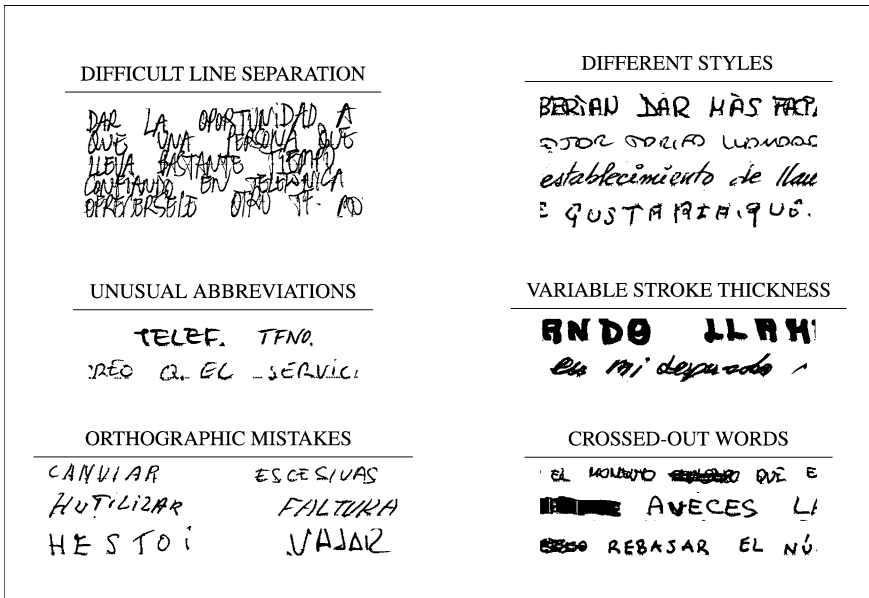 DIFFICULT LINE SEPARATION
DAR LA OPORTUNIDAD A
QUE UNA PERSONA QUE
LLEVA BASTANTE TIEMPO
CONFIANDO EN TELEFONICA
OFRECERSELO OTRO
UNUSUAL ABBREVIATIONS
TELEF. TFNO.
REO Q. EL SERVICI
ORTHOGRAPHIC MISTAKES
CANVIAR ESCESIVAS
HUTILIZAR FALTURA
HESTOI VAJAR
DIFFERENT STYLES
BERIAN DAR MÀS FACI
establecimiento de llam
E GUSTARIA.QUÉ.
VARIABLE STROKE THICKNESS
ANDO LLAM
en mi
CROSSED-OUT WORDS
EL MOMENTO QUE E
AVECES LA
REBASAR EL NÚ